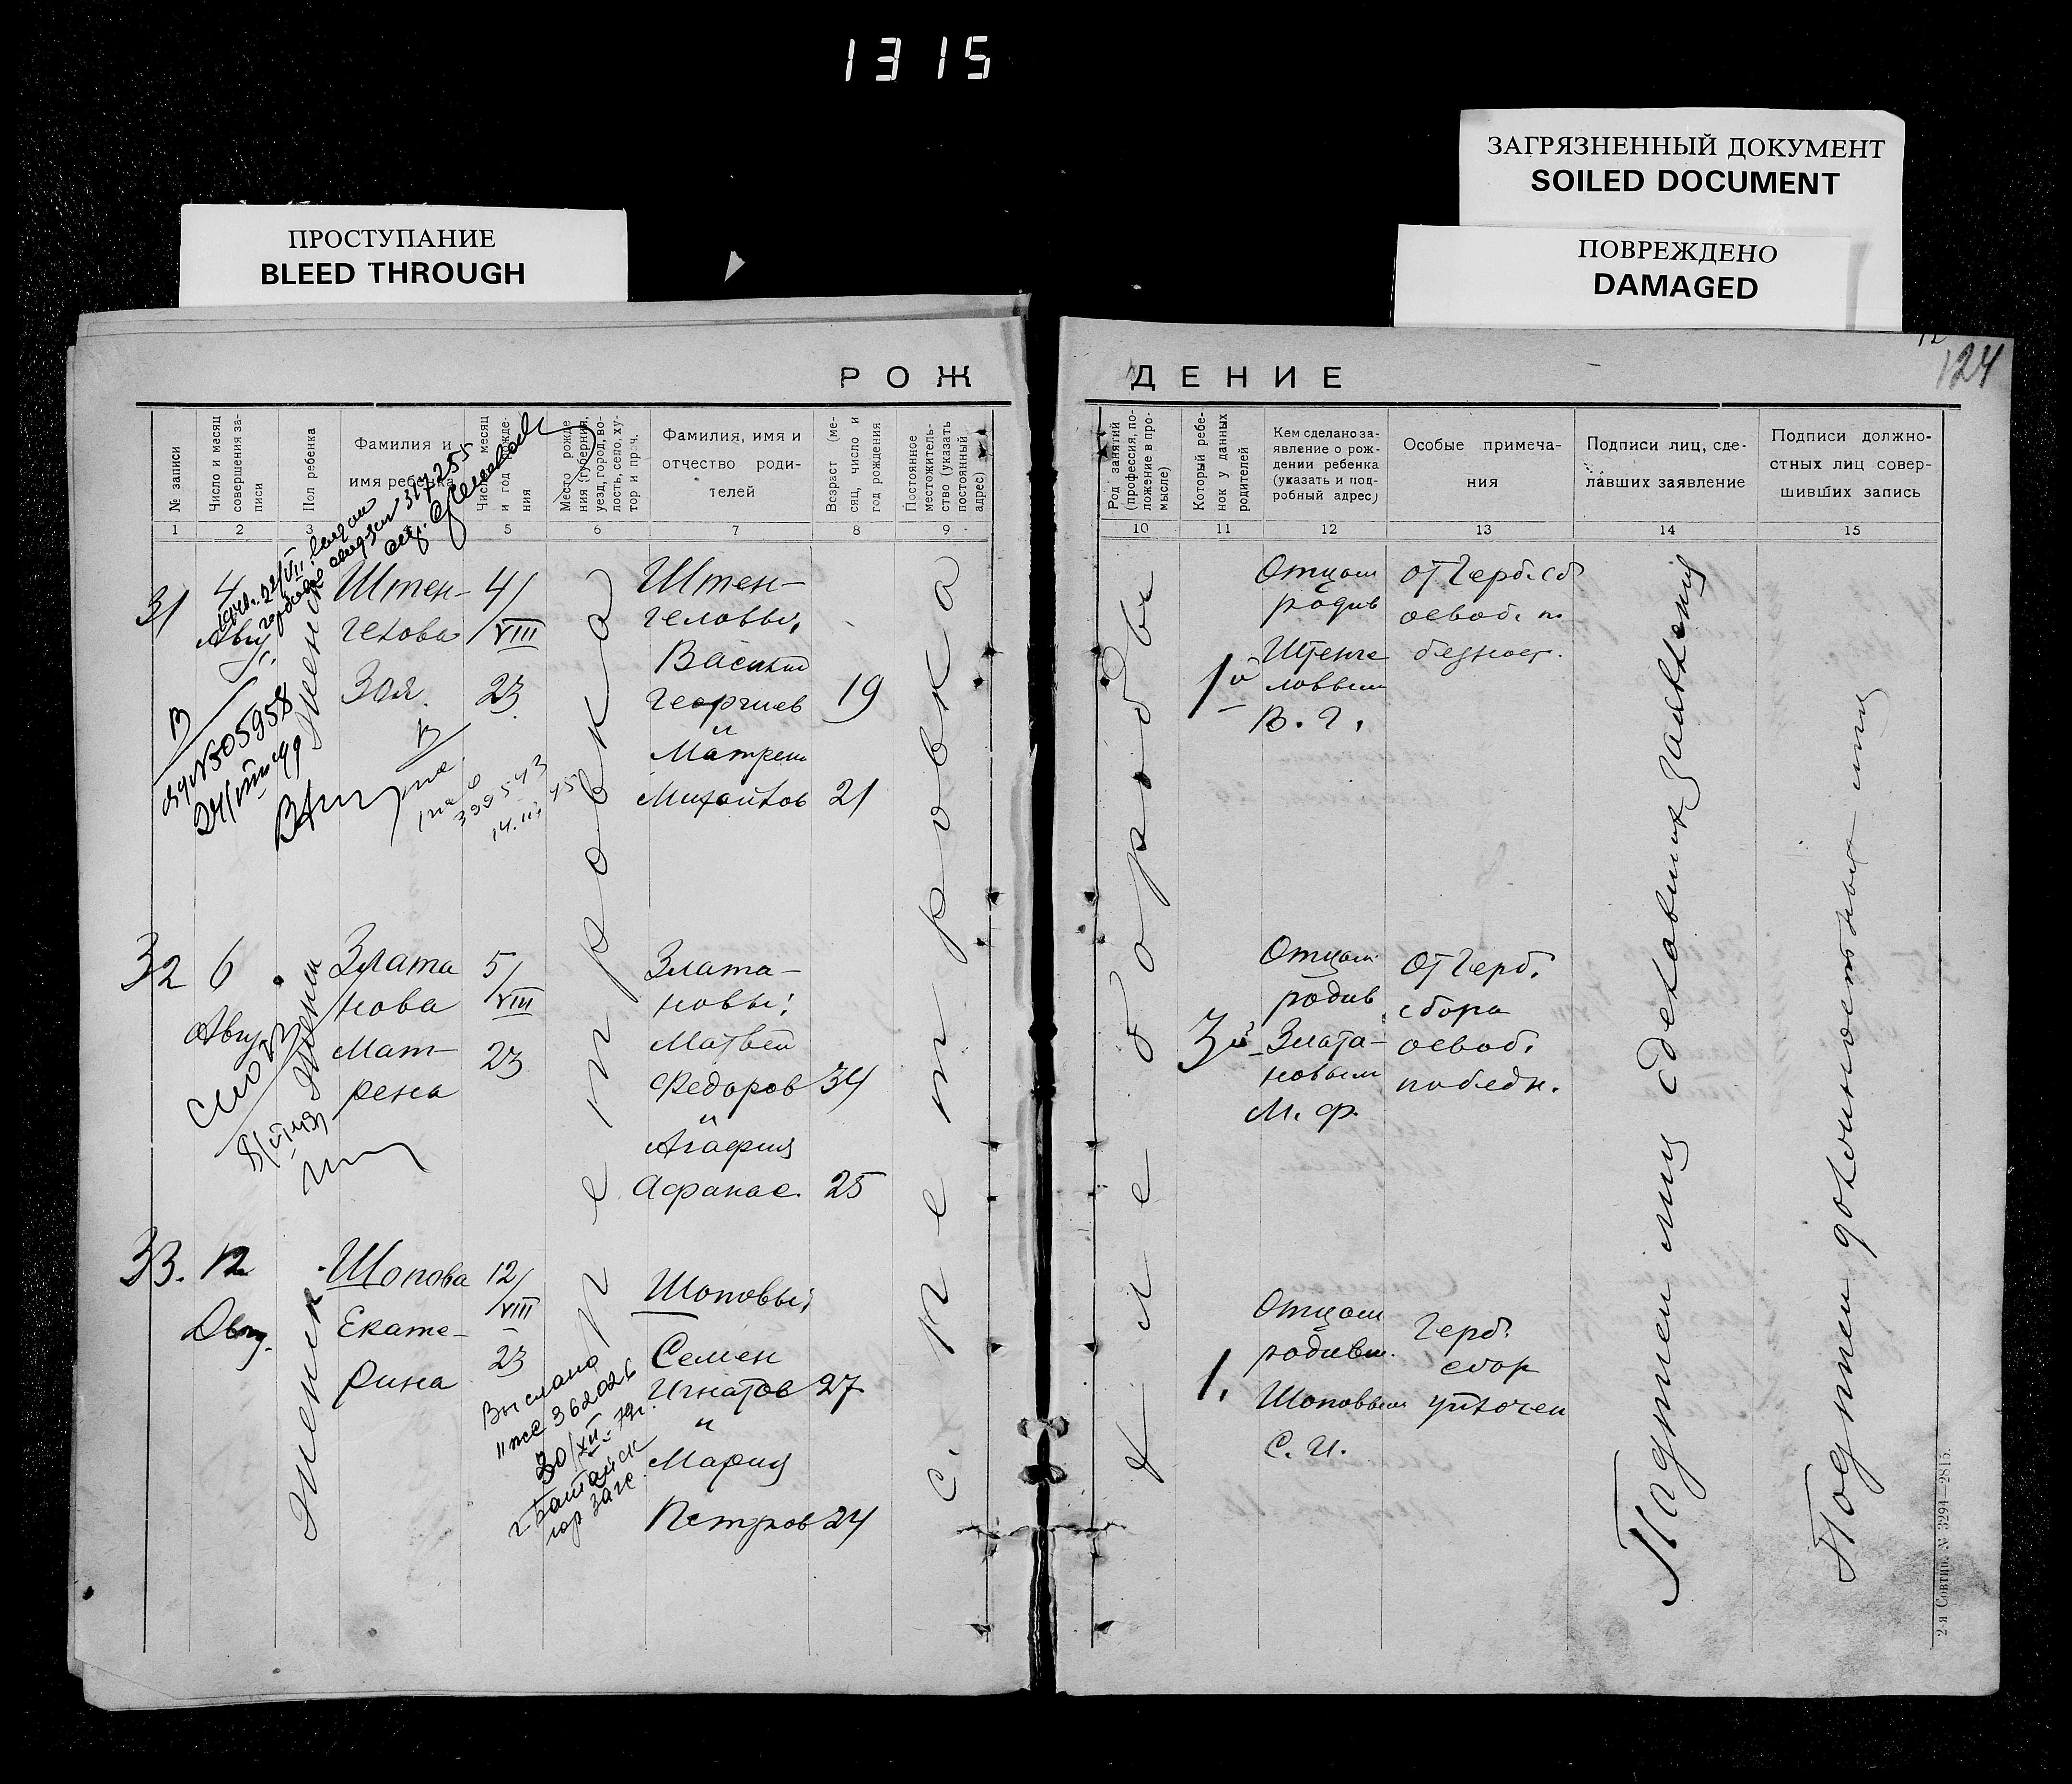 1315
ЗАГРЯЗНЕННЫЙ ДОКУМЕНТ
SOILED DOCUMENT
ПРОСТУПАНИЕ
BLEED THROUGH
ПОВРЕЖДЕНО
DAMAGED
124
РОЖ
ДЕНИЕ
№ записи
Число и месяц
совершения за-
писи
Пол ребенка
Фамилия и
имя ребенка
Число, месяц
и год рожде-
ния
Место рожде
ния (губерния,
уезд, город, во-
лость, село, ху-
тор и пр.ч.
Фамилия, имя и
отчество роди-
телей
Возраст (ме-
сяц, число и
год рождения
Постоянное
местожитель-
ство (указать
постоянный
адрес)
Род занятий
(профессия, по-
ложение в про-
мысле)
Который ребе-
нок у данных
родителей
Кем сделано за-
явление о рож-
дении ребенка
(указать и под-
робный адрес)
Особые примеча-
ния
Подписи лиц, сде-
лавших заявление
Подписи должно-
стных лиц совер-
шивших запись
1 2 3 5 6 7 8 9
10 11 12 13 14 15
31
4
Авгу
женск
Штен-
гелова
Зоя
4/
VIII
23
Штен-
геловы,
Василий
Георгиев
19
и
Матрена
Михайлов
21
1й
Отцом
родив
Штенге
ловым
В. Г.
от Герб. сб
освоб. по
бедност.
317255
№505958
399543
32
6
Авгу
женск
Злата
нова
Мат-
рена
5/
VIII
23
Злата-
новы:
Матвей
Федоров
34
и
Агафия
Афанас.
25
3й
Отцом
родив
Злата-
новым
М. Ф.
от Герб.
сбора
освоб.
по бедн.
33.
12
Авгу.
женск
Шопова
Екате-
рина
12/
VIII
23
Шоповы;
Семен
Игнатов
27
и
Мария
Петров
24
1.
Отцом
родивш.
Шоповым
С. И.
Герб.
сбор
уплочен
Выслано
362026
30/XII-79г.
г. Батайск
гор Загс
с. Петровка
хлеборобы
Подписи лиц сделавших заявления
Подписи должностных лиц
2-я Совтип. № 3294—2815.